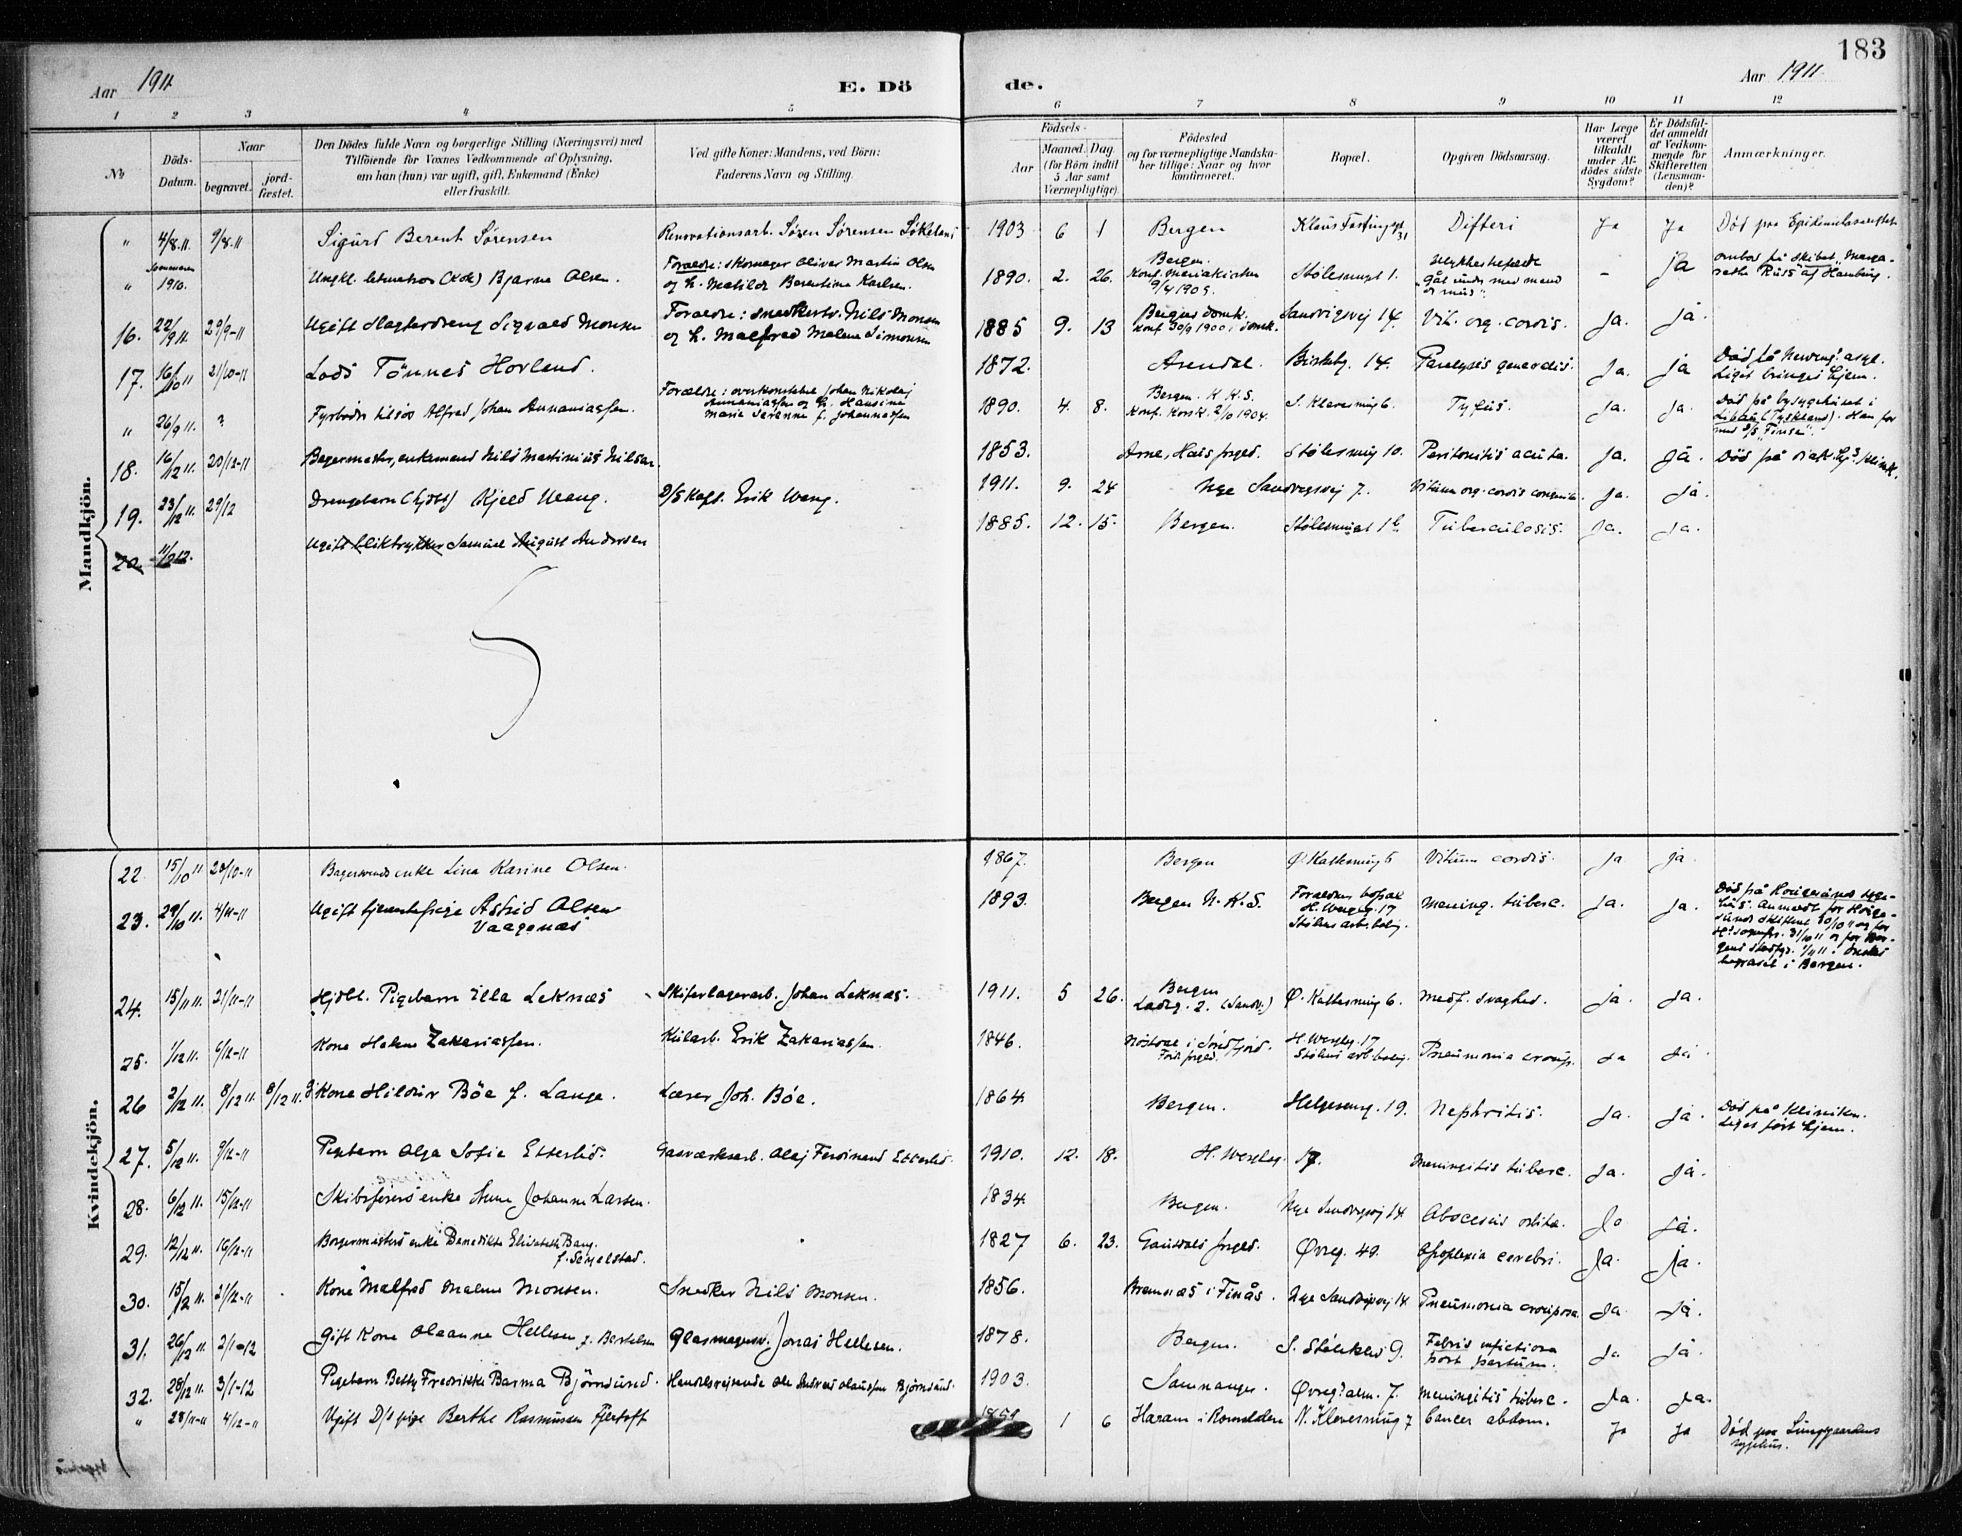 183
Aar 1911
E. Dö
de.
Aar 1911.
1 2 3 4 5 6 7 8 9 10 11 12
No
Döds-Datum.
Naar
begravet.
jord-fæstet.
Den Dödes fulde Navn og borgerlige Stilling (Næringsvei) med
Tilföiende for Voxnes Vedkommende af Oplysning,
om han (hun) var ugift, gift, Enkemand (Enke)
eller fraskilt.
Ved gifte Koner: Mandens, ved Börn:
Faderens Navn og Stilling.
Födsels-
Aar
Maaned. Dag.
(for Börn indtil
5 Aar samt
Værnepligtige).
Födested
og for værnepligtige Mandska-
ber tillige: Naar og hvor
konfirmeret.
Bopæl.
Opgiven Dödsaarsag.
Har Læge
været
tilkaldt
under Af-
dödes sidste
Sygdom?
Er Dödsfal-
det anmeldt
af Vedkom-
mende for
Skifteretten
(Lensman-
den)?
Anmærkninger.
Mandkjön.
" 4/8.11. 9/8.11 Sigurd Berent Sørensen Renovationsarb. Søren Sørensen 1903 6 1 Bergen Klaus Difteri Ja Ja Død paa
" Sommeren 1910. Ungkl. (Kok) Bjarne Olsen. Forældre: skomager Oliver Martin Olsen
og h. Matilde Berentine Karlsen. 1890. 2. 26. Bergen. Konf. Mariakirken 9/4 1905. Stølesmug 1. "Gåt under med mand og mus". – Ja ombord på skibet "Marga-
rethe Russ" af Hamburg.
16. 22/9 11. 29/9-11 Ugift Sigvald Monsen Forældre: snedkersv. Nils Monsen
og h. Malfred Malene Simonsen 1885 9. 13 Bergens domk. konf. 30/9 1900 i domk. Sandvigsvej 14. Vit. org. cordis. Ja. Ja.
17. 16/10 11 21/10-11 Lods Tönnes Hovland. 1872. Arendal. 14. Paralysis generalis. Ja. Ja Død på
Liget bringes hjem.
" 26/9 11. ? Fyrbøder Alfred Johan Annaniassen. Forældre: overkonstabel Johan Nikolaj
Annaniassen og h. Hansine
Marie Severine f. Johannessen 1890. 4. 8. Bergen. K. K. S. Konf. Korsk. 2/10 1904. S. Kleivesmug 6. Tyfus. Ja. Ja. Død på bysygehuset i
Libau (Tyskland). Han for
med
18. 16/12 11. 20/12-11 Bagermester, enkemand Nils Martinius Nilsen. 1853. Arne, Haus prgeld. Stølesmug 10. Peritonitis acuta. Ja. Ja. Død på
19. 23/12 11. 29/12 Drengebarn (hjdbt) Kjeld Wang. D/S Kapt. Erik Wang. 1911. 9. 24 Nye Sandvigsvej 7. Vitium org. cordis Ja. Ja.
20. 11/2 12. Ugift bliktrykker Samuel August Andersen 1885. 12. 15. Bergen. Stølesmuget 1 b Tuberculosis. Ja. Ja.
Kvindekjön.
22. 15/10 11 20/10-11 Bagersvends enke Lina Karine Olsen. 1867. Bergen Ø. 5 Vitium cordis. Ja Ja.
23. 29/10 11. 4/11-11 Ugift Astrid Olsen
Vaagenæs 1893. Bergen N. K. S. Forældres bopæl
H. Wergelg. 17
Stølens arb. bolig. Mening. tuberc. Ja. Ja. Død på Haugesunds syge-
hus. Anmeldt for
begravet i Bergen.
24. 15/11 11. 21/11-11 Hjdbt. Pigebarn Ella Leknæs Skiferlagerarb. Johan Leknæs. 1911. 5 26. Bergen
Ladeg. 2. (Sandv.) Ø. 6. Medf. svaghed. Ja. Ja.
25. 1/12 11. 6/12-11 Kone Helene Zakariassen. Kularb. Erik Zakariassen. 1846. i Søndfjord.
Førde prgeld. H. Wergelg. 17
Stølens arb. bolig. Pneumonia croup. Ja Ja.
26 2/12 11. 8/12 11. 8/12 11. Kone Hildur Böe f. Lange. Lærer Joh. Böe. 1864. Bergen. Helgesensg. 19. Nephritis. Ja. Ja. Død på kliniken.
Liget ført hjem.
27. 5/12 11. 9/12-11 Pigebarn Olga Sofie Etterlid. Gasværksarb. Olaj Ferdinand Etterlid. 1910. 12. 18. H. Wergelsg. 17. Meningitis tuberc. Ja. Ja.
28. 6/12 11. 15/12-11 Skibsførers enke Johanne Larsen. 1834. Bergen. Nye Sandvigsvej 14 Abscessus Ja Ja.
29. 12/12 11. 16/12-11 Borgermesters enke Benedikte Elisabeth Bang.
f. Seyelstad. 1827 6. 23. prgeld. Øvreg. 49. Apoplexia cerebri. Ja. Ja.
30. 15/12 11. 21/12-11 Kone Malfred Malene Monsen. Snedker Nils Monsen. 1856. Bremnæs i Finås. Nye Sandvigsvej 14. Pneumonia crouposa Ja. Ja.
31. 26/12 11 2/1-12 Gift Kone Oleanne Hellesen f. Bertelsen Glasmager Jonas Hellesen. 1878. Bergen. S. 9. Febris
post partum. Ja. Ja.
32. 28/12 11. 3/1-12 Pigebarn Betty Fredrikke Barma Björndund. Handelsrejsende Ole Andreas Olaussen Björndund. 1903. Samnanger. Øvreg. alm. 7. Meningitis tuberc. Ja. Ja.
" 28/11-11 4/12-11 Ugift pige Berthe Rasmussen Fjertoft 1 6 Haram i Romsdalen N. Kleivesmug 7 Cancer abdom. Ja Ja Død paa Lungegaardens
sygehus.